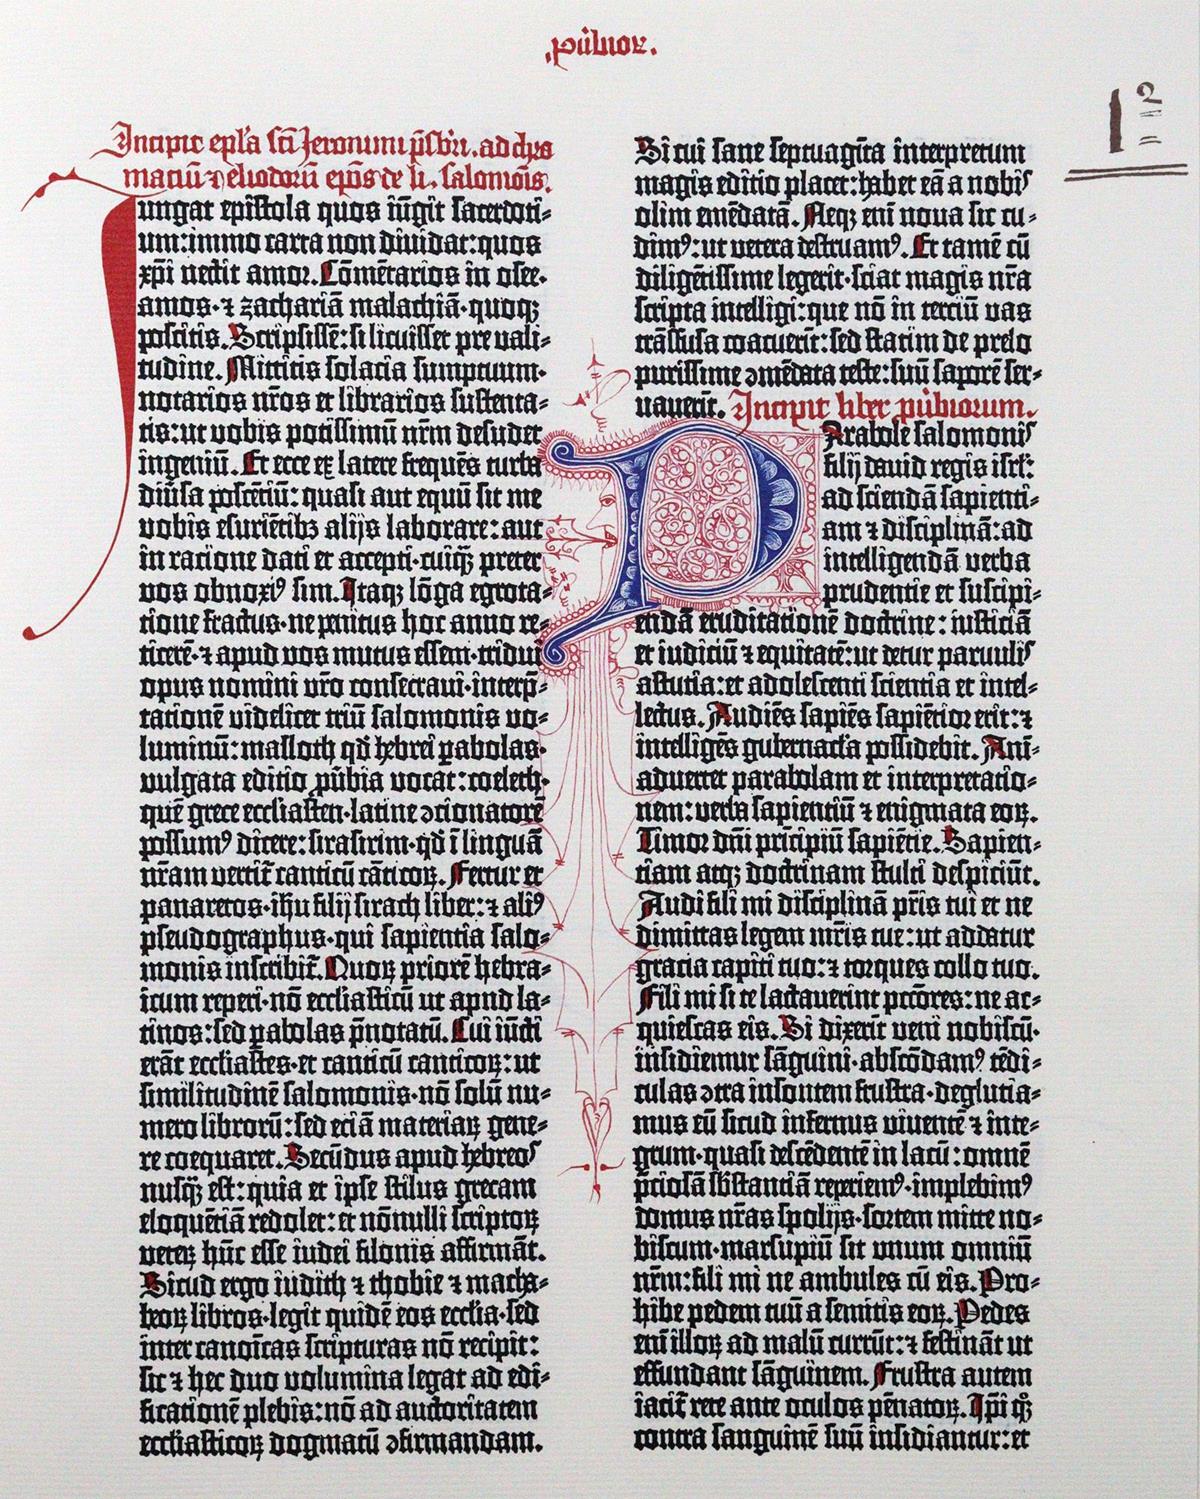 .p̄ubior̄.
1ᵃ
Incipit epl'a sc̄i Jeronimi p̄sbri. ad chro
matiū ⁊ eliodorū ep̄os de li. salomōis.
Jungat epistola quos iūgit sacerdoti-
um: immo carta non diuidat: quos
xp̄i nectit amor. Cōmētarios in osee·
amos· ⁊ zachariā malachiā· quoqꝫ
poscitis. Scripsissē: si licuisset pre vali-
tudine. Mittitis solacia sumptuum·
notarios nr̄os et librarios sustenta-
tis: ut vobis potissimū nr̄m desudet
ingeniū. Et ecce ex latere frequēs turba
diūsa poscētiū: quasi aut equū sit me
vobis esuriētibꝫ alijs laborare: aut
in ratione dati et accepti· cuiq̄ꝫ preter
vos obnoxiꝰ sim. Itaqꝫ lōga egrota-
tione fractus· ne penitus hoc anno re-
ticerē· ⁊ apud vos mutus essem· tridui
opus nomini vr̄o consecraui· interp̄-
tationē videlicet triū salomonis vo-
luminū: masloth qd̄ hebrei ꝑabolas·
vulgata editio p̄ubia vocat: coeleth·
quē grece ecclīasten· latine ↄcionatorē
possumꝰ dicere: sirasirim· qd̄ ī linguā
nr̄am vertit̄ canticū cāticoꝝ. Fertur et
panaretos· ih̄u filij sirach liber: ⁊ aliꝰ
pseudographus· qui sapientia salo-
monis inscribit̄. Quoꝝ priorē hebra-
icum reperi· nō ecclīasticū ut apud la-
tinos: sed ꝑabolas p̄notatū. Cui iūcti
erāt ecclīastes· et canticū canticoꝝ: ut
similitudinē salomonis· nō solū nu-
mero librorū: sed eciā materiaꝝ gene-
re coequaret. Secūdus apud hebreos
nusq̄ꝫ est: quia et ipse stilus grecam
eloquētiā redolet: et nōnulli scriptoꝝ
veteꝝ hūc esse iudei filonis affirmāt.
Sicud ergo iudith ⁊ thobie ⁊ macha-
beoꝝ libros· legit quidē eos ecclīa· sed
inter canoīcas scripturas nō recipit:
sic ⁊ hec duo volumina legat ad edi-
ficationē plebis: nō ad auctoritatem
ecclīasticoꝝ dogmatū ↄfirmandam.
Si cui sane septuagīta interpretum
magis editio placet: habet eā a nobis
olim emēdatā. Neqꝫ enī noua sic cu-
dimꝰ: ut vetera destruamꝰ. Et tamē cū
diligētissime legerit· sciat magis nr̄a
scripta intelligi: que nō in terciū vas
trāsfusa coacuerīt: sed statim de prelo
purissime ↄmēdata teste: suū saporē ser-
uauerīt. Incipit liber p̄ubiorum.
Parabole salomonis
filij dauid regis isrl':
ad sciendā sapienti-
am ⁊ disciplinā: ad
intelligendā verba
prudentie et suscipi-
endā eruditationē doctrine: iusticiā
et iudiciū ⁊ equitatē: ut detur paruulis
astutia: et adolescenti scientia et intel-
lectus. Audiēs sapiēs sapiētior erit: ⁊
intelligēs gubernacl'a possidebit. Ani-
aduertet parabolam et interpretatio-
nem: verba sapientiū ⁊ enigmata eoꝝ.
Timor dn̄i prīcipiū sapiētie. Sapien-
tiam atqꝫ doctrinam stulti despiciūt.
Audi fili mi disciplinā pr̄is tui et ne
dimittas legem mr̄is tue: ut addatur
gracia capiti tuo: ⁊ torques collo tuo.
Fili mi si te lactauerint pctōres: ne ac-
quiescas eis. Si dixerīt veni nobiscū·
insidiemur sāguini· abscōdamꝰ tēdi-
culas ↄtra insontem frustra· deglutia-
mus eū sicud infernus viuentē ⁊ inte-
grum· quasi descēdentē in lacū: omnē
p̄ciosā sb̄stantiā reperiemꝰ· implebimꝰ
domus nr̄as spolijs· sortem mitte no-
biscum· marsupiū sit unum omniū
nr̄m: fili mi ne ambules cū eis. Pro-
hibe pedem tuū a semitis eoꝝ. Pedes
enī illoꝝ ad malū currūt: ⁊ festināt ut
effundant sāguinem. Frustra autem
iacit̄ rete ante oculos pēnatoꝝ. Ip̄i qͦꝫ
contra sanguinē suū insidiantur: et